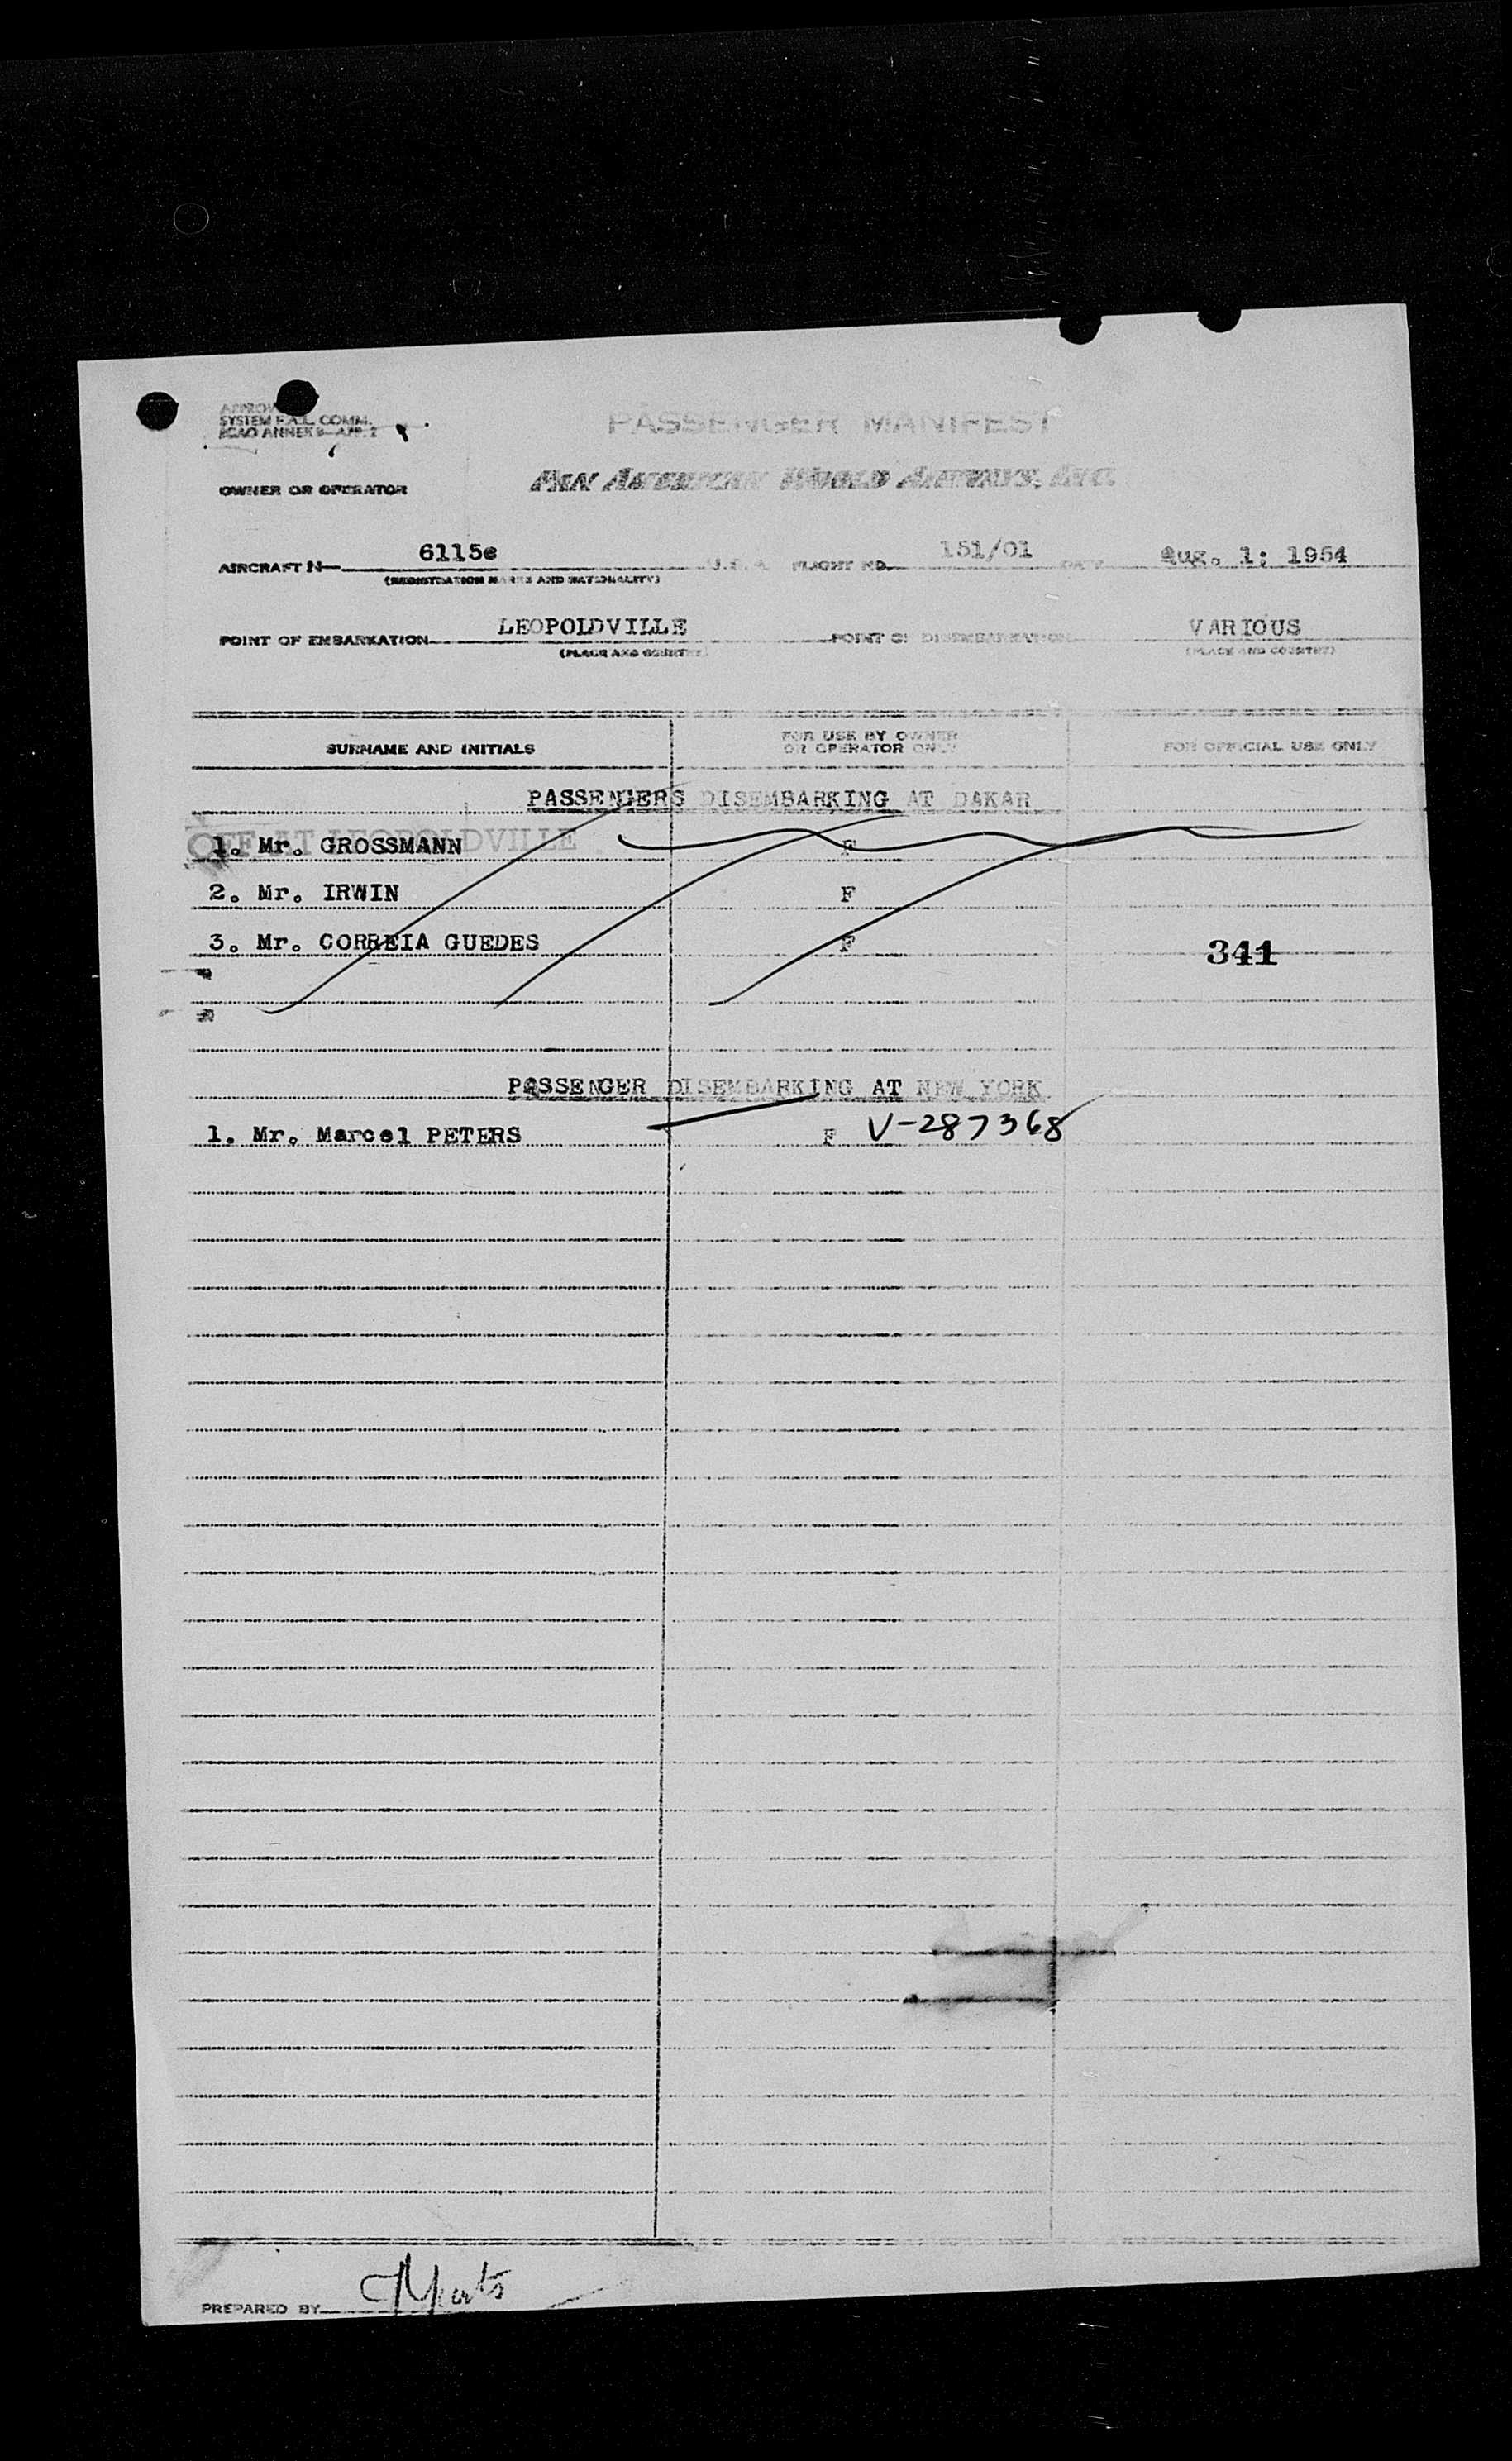 APPROV
SYSTEM F.A.L. COMM.
ICAO ANNEX 9—APP. 2
PASSENGER MANIFEST
OWNER OR OPERATOR PAN AMERICAN WORLD AIRWAYS, INC.
AIRCRAFT N— 6115c U.S.A. FLIGHT NO. 151/01 DATE Aug. 1; 1954
(REGISTRATION MARKS AND NATIONALITY)
POINT OF EMBARKATION LEOPOLDVILLE POINT OF DISEMBARKATION VARIOUS
(PLACE AND COUNTRY) (PLACE AND COUNTRY)
SURNAME AND INITIALS FOR USE BY OWNER OR OPERATOR ONLY FOR OFFICIAL USE ONLY
PASSENGERS DISEMBARKING AT DAKAR
OFF AT LEOPOLDVILLE
1. Mr. GROSSMANN F
2. Mr. IRWIN F
3. Mr. CORREIA GUEDES F
341
PASSENGER DISEMBARKING AT NEW YORK
1. Mr. Marcel PETERS F V-287368
PREPARED BY